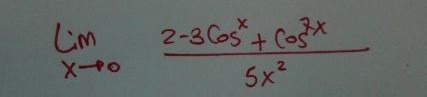 lim x→0 (2-3Cos^x + Cos^2x) / 5x^2